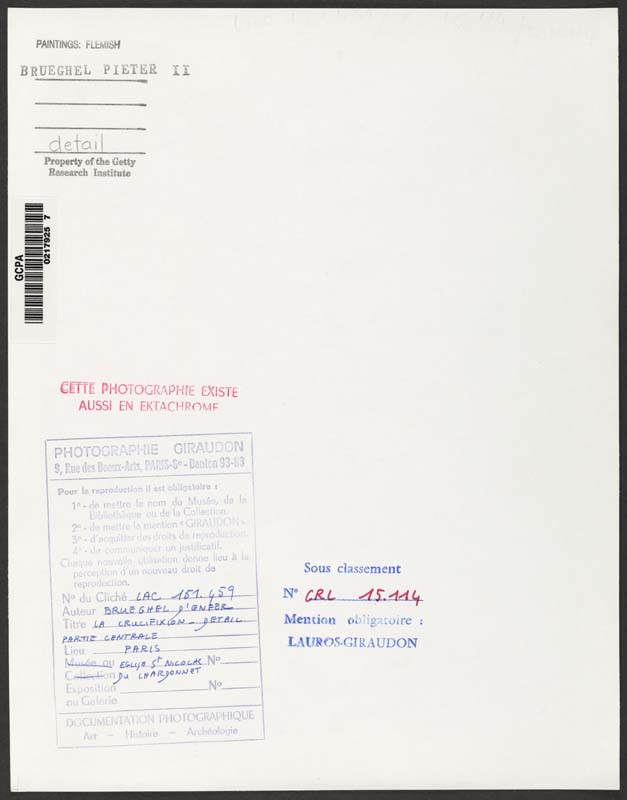 PAINTINGS: FLEMISH
BRUEGHEL PIETER II
detail
Property of the Getty
Research Institute
GCPA
0217925 7
CETTE PHOTOGRAPHIE EXISTE
AUSSI EN EKTACHROME
PHOTOGRAPHIE GIRAUDON
9, Rue des Beaux-Arts, PARIS-6e - Danton 93-83
Pour la reproduction il est obligatoire :
1º - de mettre le nom du Musée, de la
Bibliothèque ou de la Collection.
2º - de mettre la mention « GIRAUDON ».
3º - d'acquitter des droits de reproduction.
4º - de communiquer un justificatif.
Chaque nouvelle utilisation donne lieu à la
perception d'un nouveau droit de
reproduction.
Nº du Cliché LAC 151.459
Auteur BRUEGHEL D'ENFER
Titre LA CRUCIFIXION - DETAIL
PARTIE CENTRALE
Lieu PARIS
Musée ou EGLISE St NICOLAS Nº
Collection DU CHARDONNET
Exposition Nº
ou Galerie
DOCUMENTATION PHOTOGRAPHIQUE
Art - Histoire - Archéologie
Sous classement
Nº CRL 15.114
Mention obligatoire :
LAUROS-GIRAUDON